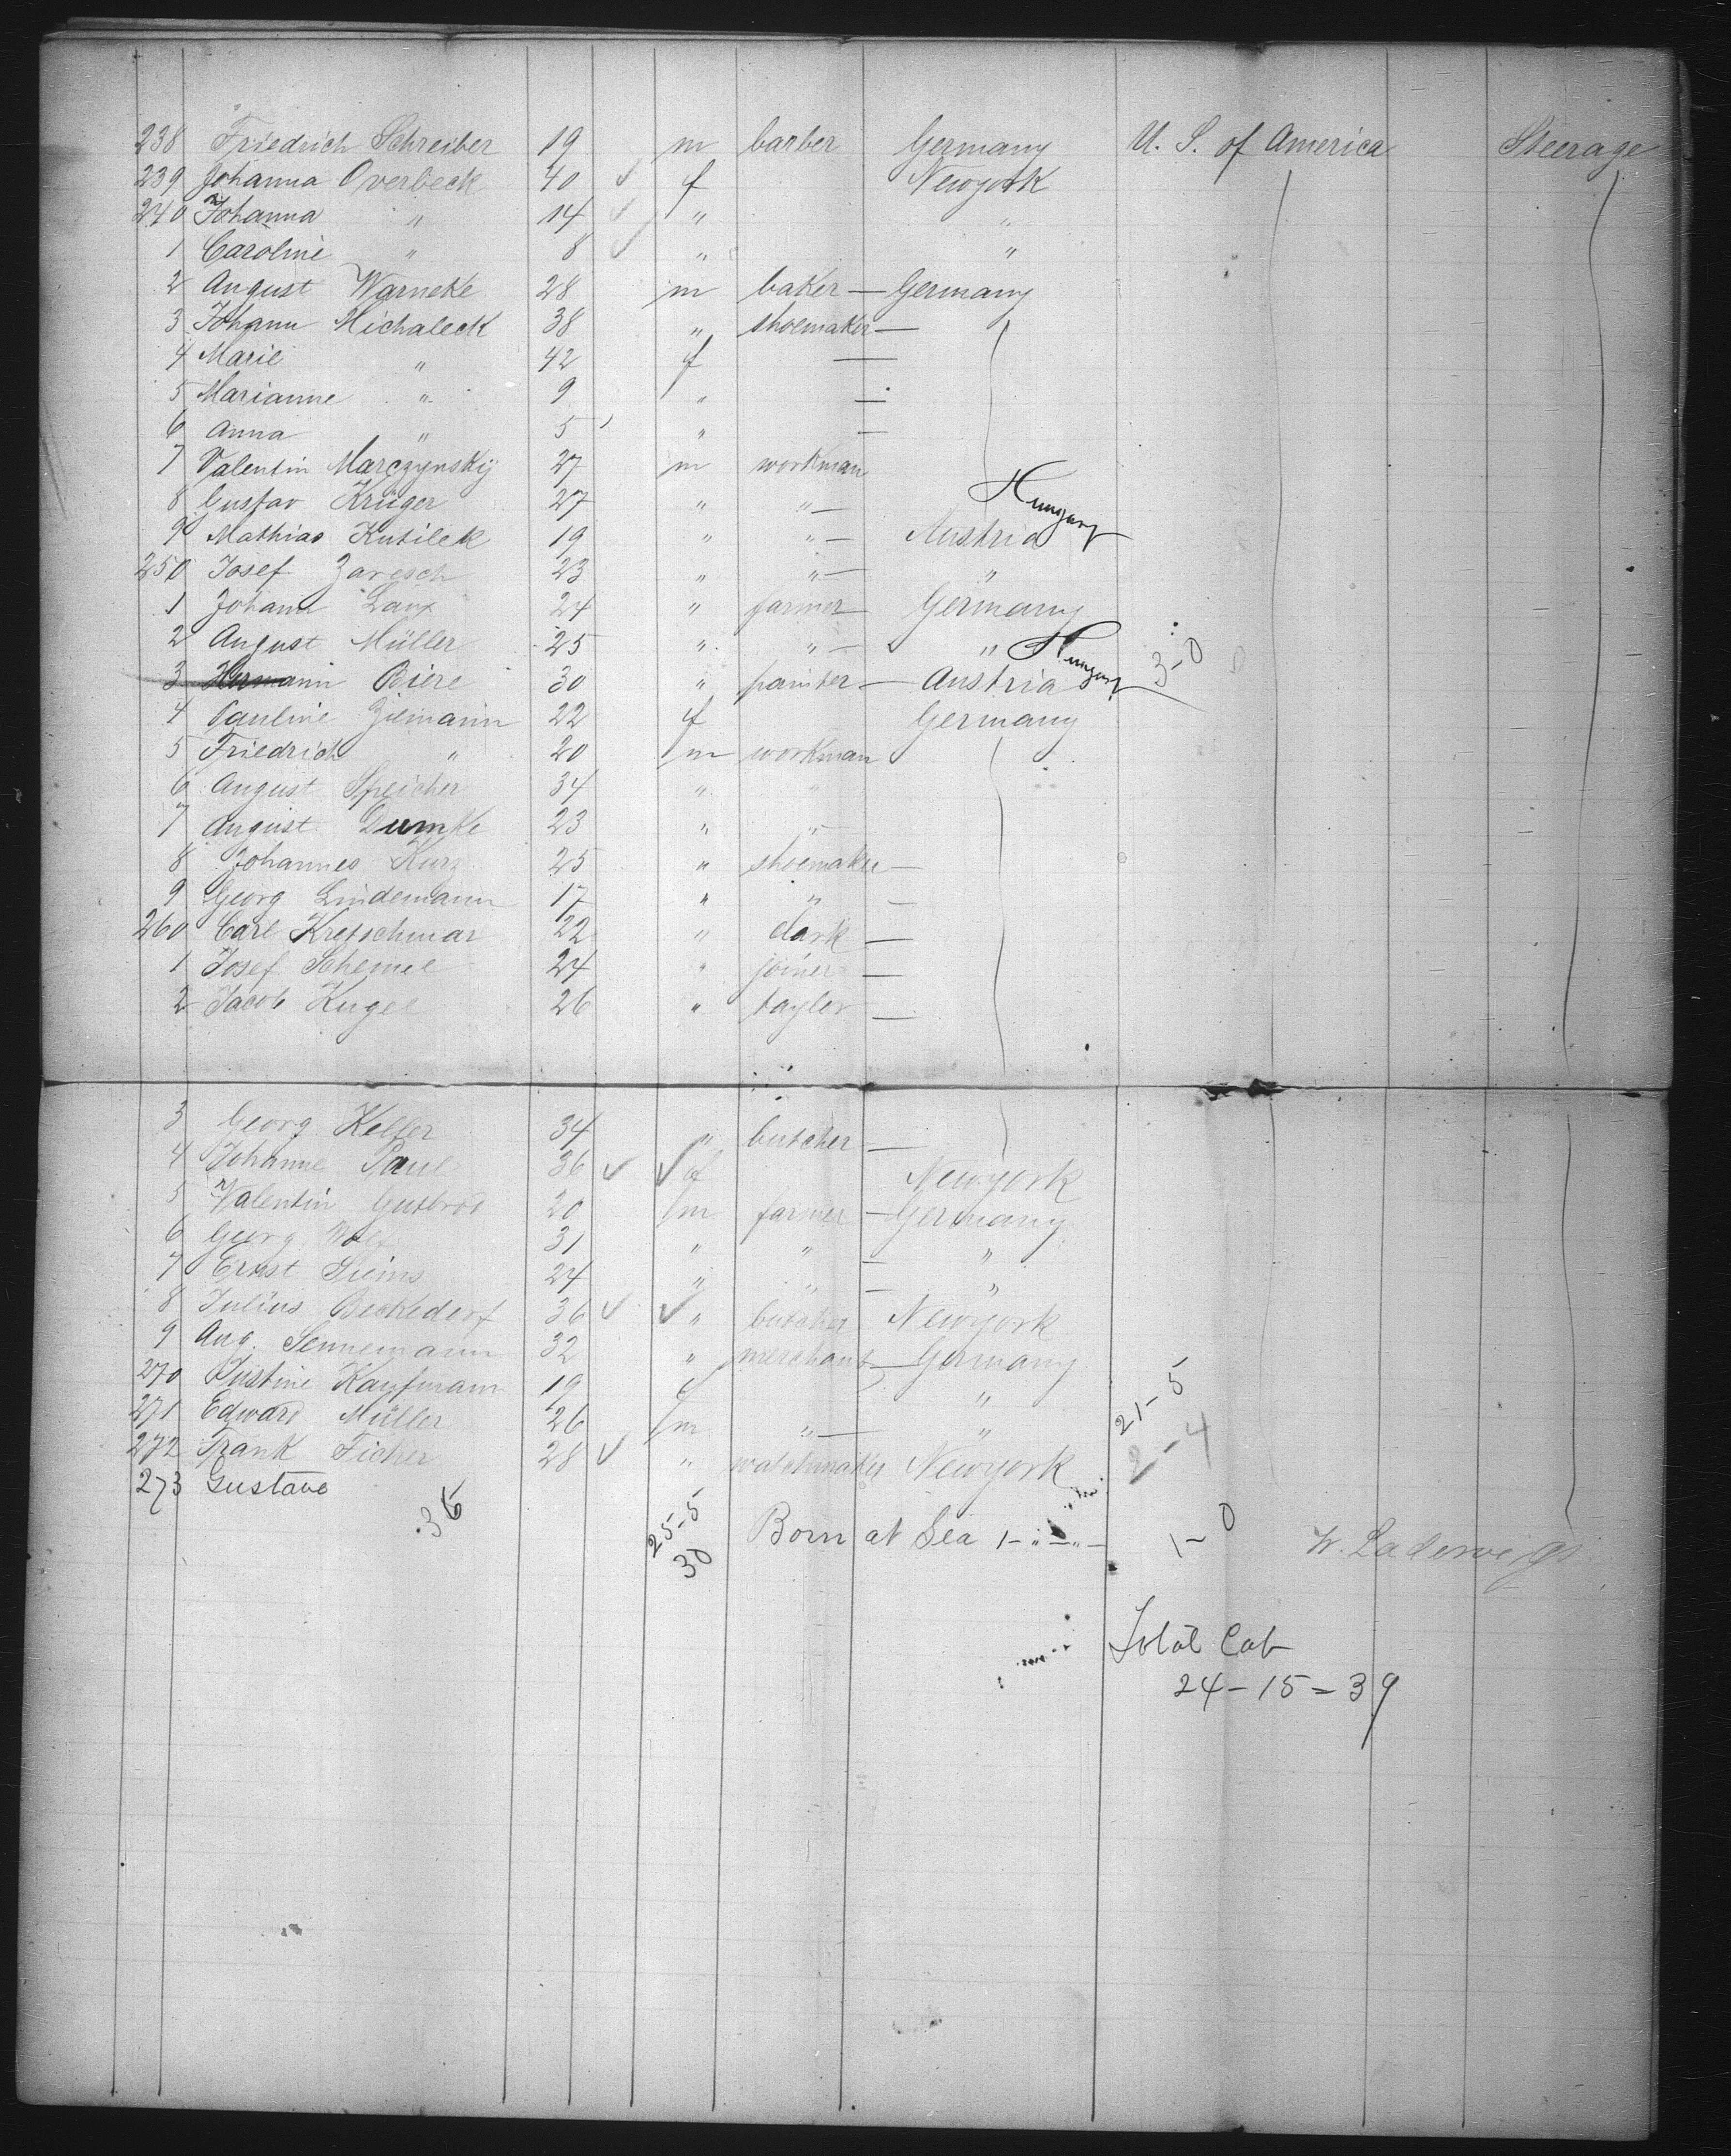 238 Friedrich Schreiber 19 m barber Germany U. S. of America Steerage
239 Johanna Overbeck 40 ✓ f Newyork
240 Johanna " 14 ✓ " "
1 Caroline " 8 ✓ " "
2 August Warneke 28 m baker — Germany
3 Johann Michaleck 38 " shoemaker —
4 Marie " 42 f —
5 Marianne " 9 " —
6 Anna " 5 " —
7 Valentin Marczynsky 27 m workman
8 Gustav Krüger 27 " " — Hungary
9 Mathias Kutilek 19 " " — Austria
250 Josef Zaresch 23 " " — "
1 Johann Laux 24 " farmer — Germany
2 August Müller 25 " " — " Hungary
3 Hermann Biere 30 " painter — Austria 3-0
4 Pauline Ziemann 22 f Germany
5 Friedrich " 20 m workman
6 August Speicher 34 " "
7 August Dumke 23 " "
8 Johannes Kurz 25 " shoemaker —
9 Georg Lindemann 17 " " —
260 Carl Kretschmar 22 " clark —
1 Josef Schemel 24 " joiner —
2 Jacob Kugel 26 " tayler —
3 Georg Keller 34 " butcher —
4 Johanne Paul 36 ✓ ✓ f Newyork
5 Valentin Gutbrod 20 m farmer — Germany
6 Georg Wolf 31 " " — "
7 Ernst Siems 24 " " — "
8 Julius Beckedorf 36 ✓ ✓ " butcher Newyork
9 Aug. Sennemann 32 " merchant — Germany
270 Justine Kaufmann 19 f "
271 Edward Müller 26 m " — " 21-5
272 Frank Ficher 28 ✓ " watchmaker Newyork 2-4
273 Gustave
36 25-5 Born at Sea 1 - " - " - 1-0 W. Ladewigs
30
Total Cab
24-15=39